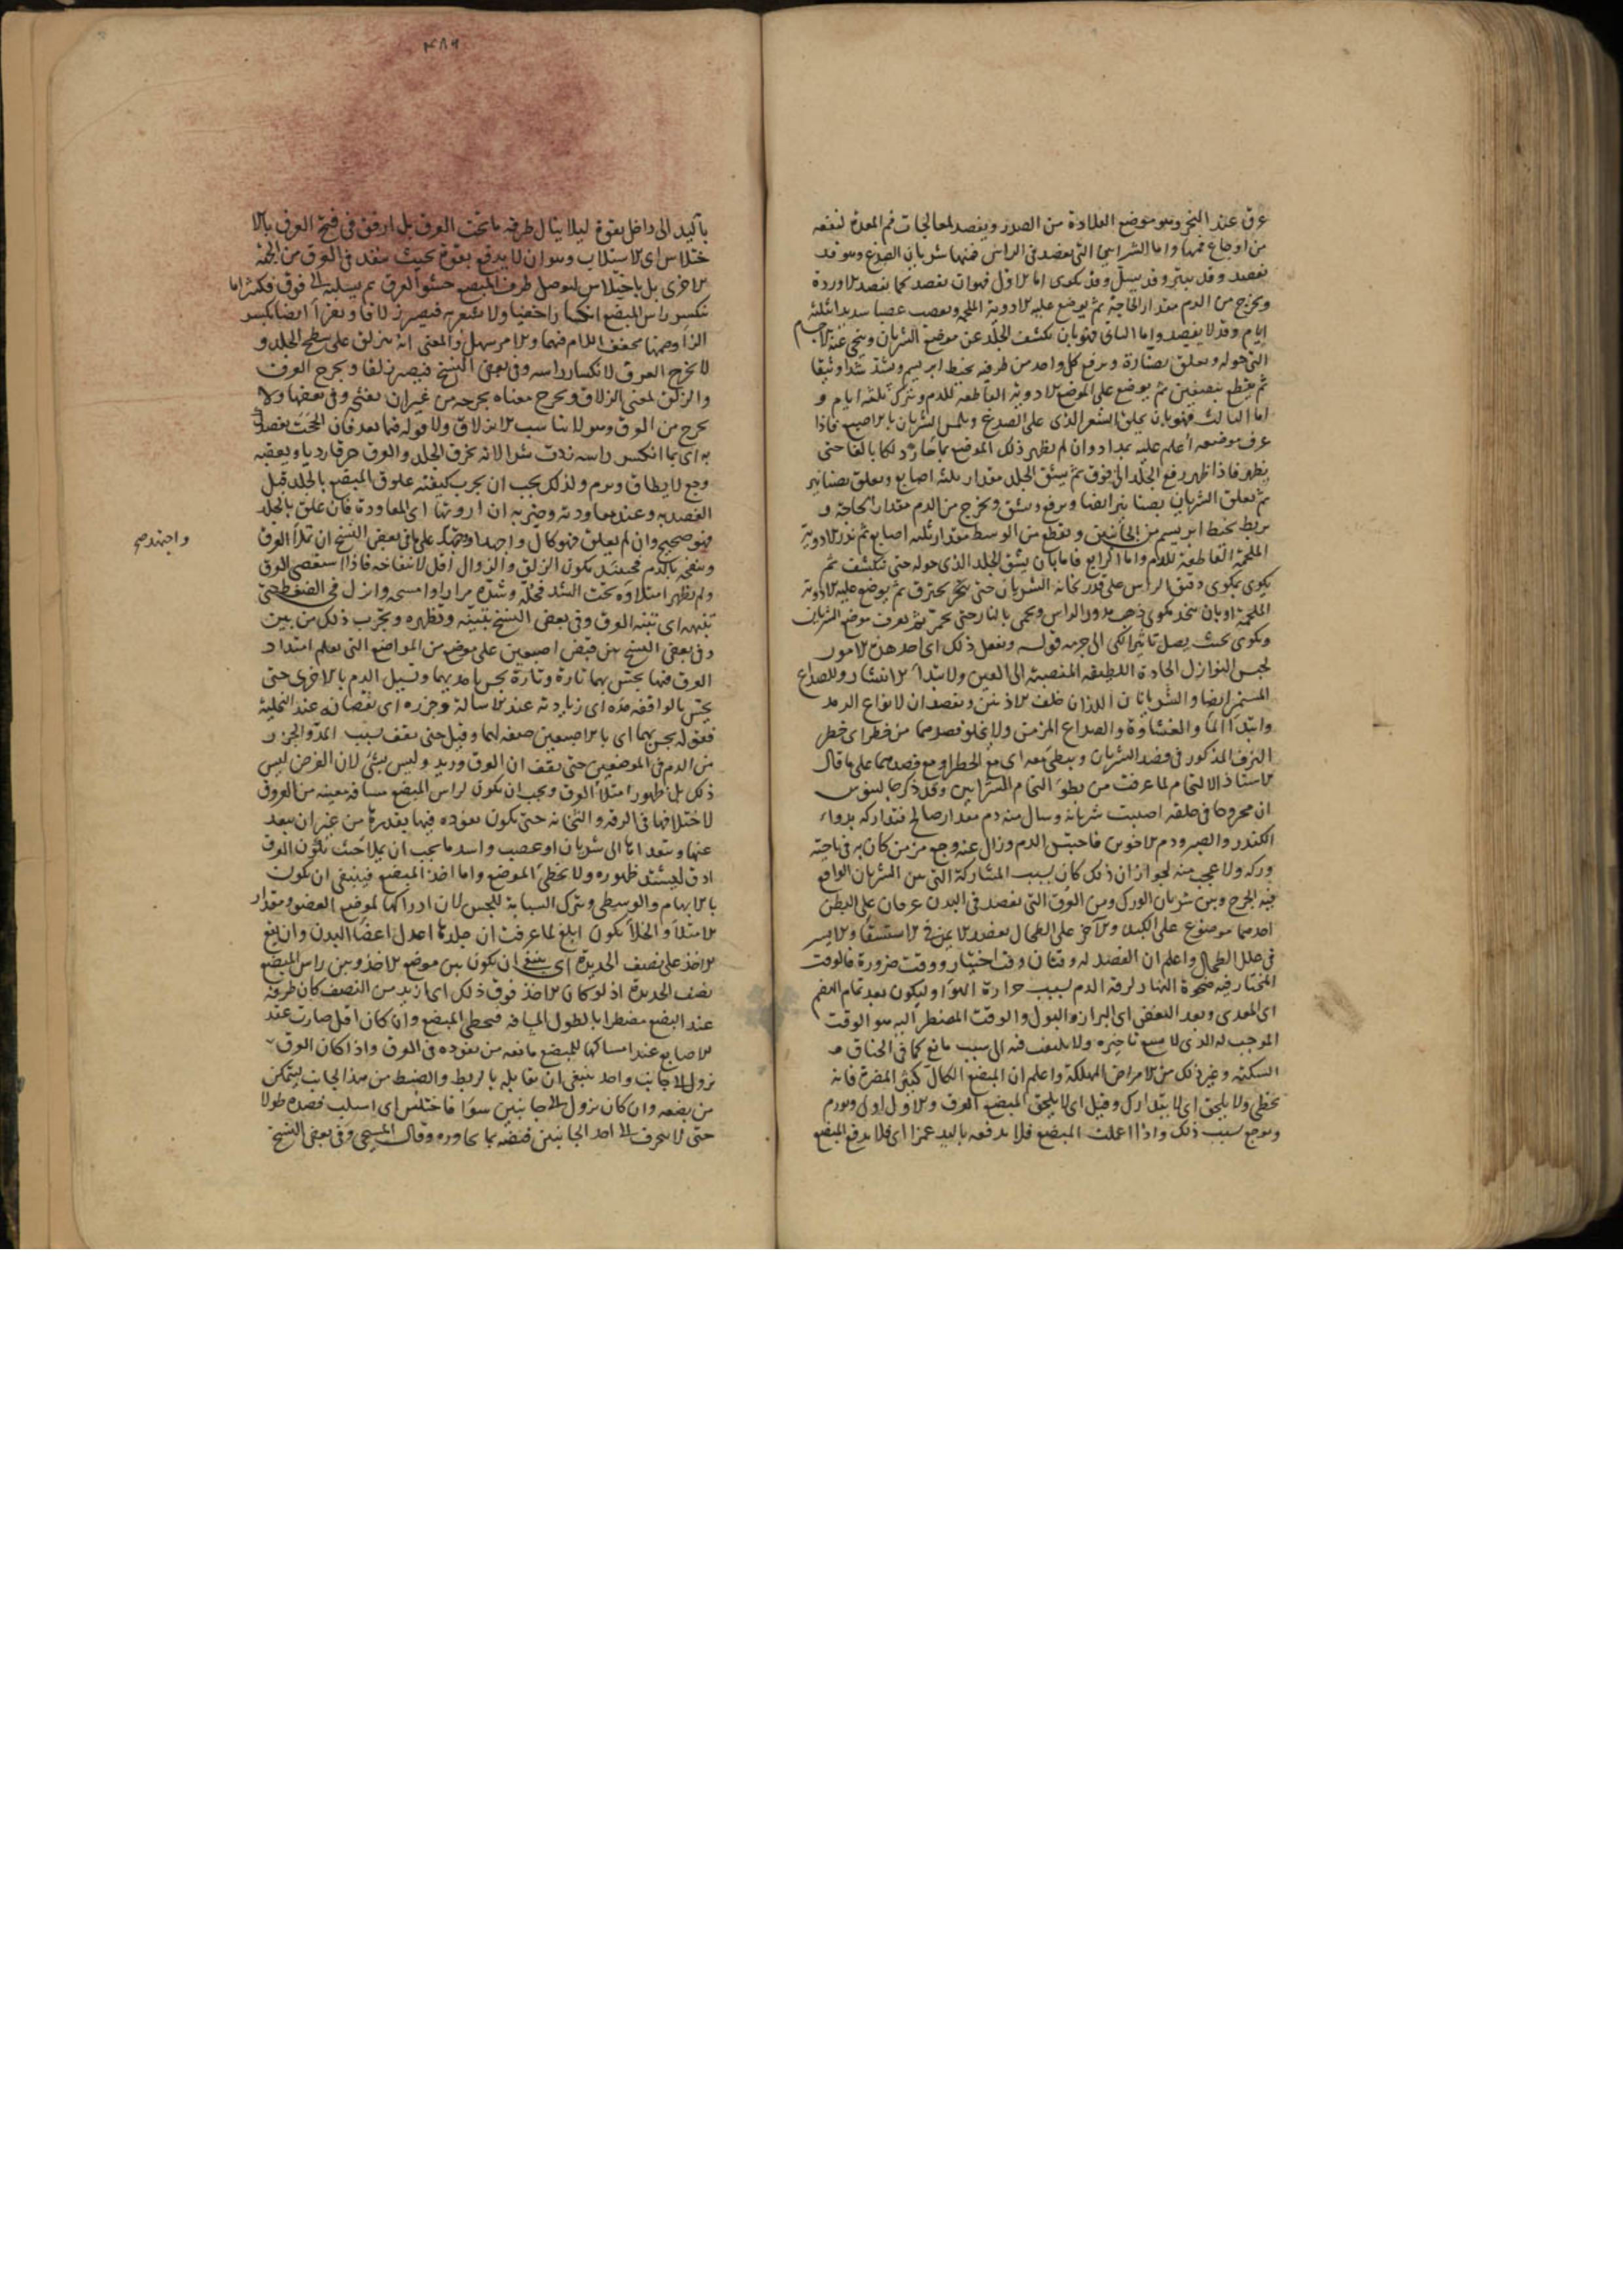 عرق عند النحر وهو موضع القلادة من الصدر ويفصد لمعالجات فم المعدة لنفعه
من اوجاع فمها واما الشرايين التي تفصد في الراس فمنها شريان الصدغ وهو قد
يفصد وقد يبتر وقد يسل وقد يكوى اما الاول فهو ان يفصد كما يفصد الاوردة
ويخرج من الدم مقدار الحاجة ثم يوضع عليه الادوية الملحمة ويعصب عصبا شديدا ثلثة
ايام وقد لا يفصد واما الثاني فهو بان يكشف الجلد عن موضع الشريان وينحى عنه الاجسام
التي حوله ويعلق بصنارة ويرفع كل واحد من طرفيه بخيط ابريسم ويشد شدا وثيقا
ثم يقطع بنصفين ثم يوضع على الموضع الادوية القاطعة للدم ويترك ثلثة ايام و
اما الثالث فهو بان يحلق الشعر الذي على الصدغ ويلمس الشريان بالاصبع فاذا
عرف موضعه اعلم عليه بمداد وان لم يظهر ذلك الموضع بماء حار دلكا بالغا حتى
يظهر فاذا ظهر رفع الجلد الى فوق ثم يشق الجلد مقدار ثلثة اصابع ويعلق بصنانير
ثم يعلق الشريان بصنانير ايضا ويرفع ويشق ويخرج من الدم مقدار الحاجة و
يربط بخيط ابريسم من الجانبين ويقطع من الوسط مقدار ثلثة اصابع ثم تذر الادوية
الملحمة القاطعة للدم واما الرابع فاما بان يشق الجلد الذي حوله حتى تنكشف ثم
يكوى بمكوى دقيق الراس على قدر ثخانة الشريان حتى يحترق ثم يوضع عليه الادوية
الملحمة او بان يتخذ مكوى ذهب مدور الراس ويحمى بالنار حتى يحمر ثم يعرف موضع الشريان
ويكوى بحيث يصل تاثير الكي الى جرمه قوله ويفعل ذلك اى احد هذه الامور
لحبس النوازل الحادة اللطيفة المنصبة الى العين ولابتداء الانتشار وللصداع
المستمر ايضا والشريانان اللذان خلف الاذنين ويفصدان لانواع الرمد
وابتداء الماء والغشاوة والصداع المزمن ولا يخلو فصدهما من خطر اى خطر
النزف المذكور في فصد الشريان ويبطئ معه اى مع الخطر او مع فصدهما على ما قال
الاستاذ الالتحام لما عرفت من بطؤ التحام الشرايين وقد ذكر جالينوس
ان مجروحا في حلقه اصيبت شريانه وسال منه دم مقدار صالح فتداركه بدواء
الكندر والصبر ودم الاخوين فاحتبس الدم وزال عنه وجع مزمن كان به في ناحية
وركه ولا عجب منه لجواز ان ذلك كان بسبب المشاركة التي بين الشريان الواقع
فيه الجرح وبين شريان الورك ومن العروق التي تفصد في البدن عرقان على البطن
احدهما موضوع على الكبد والاخر على الطحال يفصد الايمن في الاستسقاء والايسر
في علل الطحال واعلم ان الفصد له وقتان وقت اختيار ووقت ضرورة فالوقت
المختار فيه ضحوة النهار لرقة الدم بسبب حرارة الهواء وليكون بعد تمام الهضم
اى المعدى وبعد النفض اى البراز والبول والوقت المضطر اليه هو الوقت
الموجب له الذي لا يسع تاخيره ولا يلتفت فيه الى سبب مانع كما في الخناق و
السكتة وغير ذلك من الامراض المهلكة واعلم ان المبضع الكال كثير المضرة فانه
يخطى ولا يلحق اى لا يتدارك وقيل اى لا يلحق المبضع العرق والاول اولى ويورم
ويوجع بسبب ذلك واذا اعملت المبضع فلا تدفعه باليد غمزا اى فلا يدفع المبضع
٤٨٩
باليد الى داخل بقوة ليلا ينال طرفه ما تحت العرق بل ارفق في فتح العرق بالا
ختلاس اى الاستلاب وهو ان لا يدفع بقوة بحيث ينفذ في العرق من الجهة
الاخرى بل باختلاس ليوصل طرف المبضع حشو العرق ثم يسلبه الى فوق فكثيرا ما
ينكسر راس المبضع انكسارا خفيا ولا يشعر به فيصير زلاقا ويقرأ ايضا بكسر
الزاء وضمها مخفف اللام فيهما والامر سهل والمعنى انه ينزلق على سطح الجلد و
لا يخرج العرق لانكسار راسه وفي بعض النسخ فيصير زلقا ويجرح العرق
والزلق لمعنى الزلاق ويجرح معناه يجرحه من غير ان يفتح وفي بعضها ولا
يجرح من العرق وهو لا يناسب الانزلاق ولا قوله فيما بعد فان الححت بفصدك
به اى بما انكسر راسه زدت شرا لانه يخرق الجلد والعرق خرقا رديا ويعقبه
وجع لا يطاق وورم ولذلك يجب ان يجرب كيفية علوق المبضع بالجلد قبل
الفصد به وعند معاودة ضربه ان اردتها اى المعاودة فان علق بالجلد
فهو صحيح وان لم يعلق فهو كال واجهد على ما في بعض النسخ ان تملأ العرق
واجتهد صح
وتنفخه بالدم فحينئذ يكون الزلق والزوال اقل لانتفاخه فاذا استعصى العرق
ولم يظهر امتلاؤه تحت الشد فحله وشده مرارا وامسحه وانزل في الضغط حتى
تنبهه اى تنبه العرق وفي بعض النسخ تبينه وتظهره ويجرب ذلك من بين
وفي بعض النسخ من قبض اصبعين على موضع من المواضع التي تعلم امتداد
العرق فيها يحبس بهما تارة وتارة يحبس باحديهما وتسيل الدم بالاخرى حتى
يحس بالواقفة مده اى زيادته عند الاسالة وجزره اى نقصانه عند التخلية
فقوله يحبس بهما اى بالاصبعين صفة لهما وقيل حتى يقف بسبب المد والجزر
من الدم في الموضعين حتى يقف ان العرق وريد وليس بشئ لان الغرض ليس
ذلك بل ظهور امتلاء العرق ويجب ان يكون لراس المبضع مسافة معينة من العروق
لاختلافها في الرقة والثخانة حتى يكون نفوذه فيها بقدرها من غير ان يبعد
عنها ويتعداها الى شريان او عصب واشد ما يجب ان يملأ حيث يكون العرق
ادق ليشتد ظهوره ولا يخطى الموضع واما اخذ المبضع فينبغي ان يكون
بالابهام والوسطى ويترك السبابة للجس لان ادراكها لموضع العضو ومقدار
الامتلاء والخلاء يكون ابلغ لما عرفت ان جلدها اعدل اعضاء البدن وان يقع
الاخذ على نصف الحديدة اى ينبغي ان يكون بين موضع الاخذ وبين راس المبضع
نصف الحديدة اذ لو كان الاخذ فوق ذلك اى ازيد من النصف كان طرفه
عند البضع مضطربا لطول المسافة فيخطى المبضع وان كان اقل صارت عقد
الاصابع عند امساكها للمبضع مانعة من نفوذه في العرق واذا كان العرق
يزول الى جانب واحد ينبغي ان يقابله بالربط والضبط من هذا الجانب ليتمكن
من بضعه وان كان يزول الى جانبين سواء فاختلس اى اسلب فصده طولا
حتى لا ينحرف الى احد الجانبين فتضر بما يجاوره وقال المسيحي وفي بعض النسخ